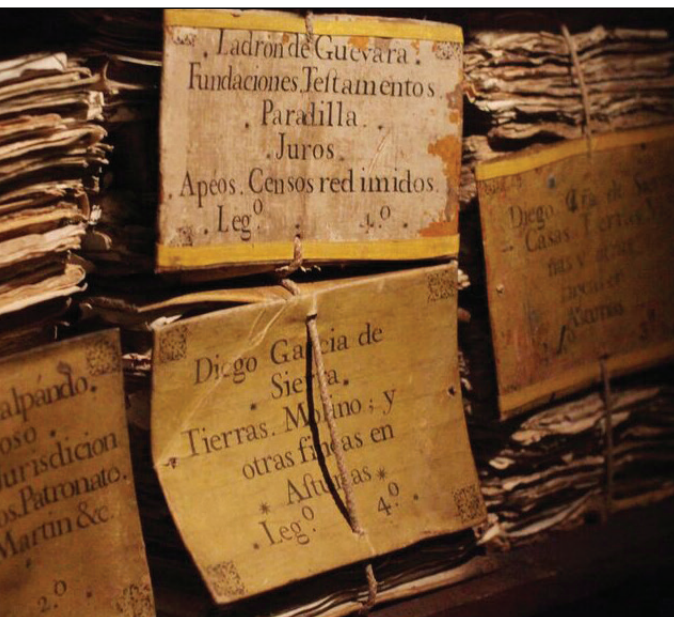 . Ladron de Guevara .
Fundaciones. Testamentos.
. Paradilla .
. Juros .
. Apeos. Censos redimidos.
. Legº . 1.º .
Diego Garcia de
. Sierra .
Tierras. Molino; y
otras fincas en
* Asturias *
. Legº. 4º .
alpándo.
oso .
urisdicion
os. Patronato.
Martin &c.
2.º .
Diego Gra. de Sierra
Casas. Tierras.
y otras
en
Asturias